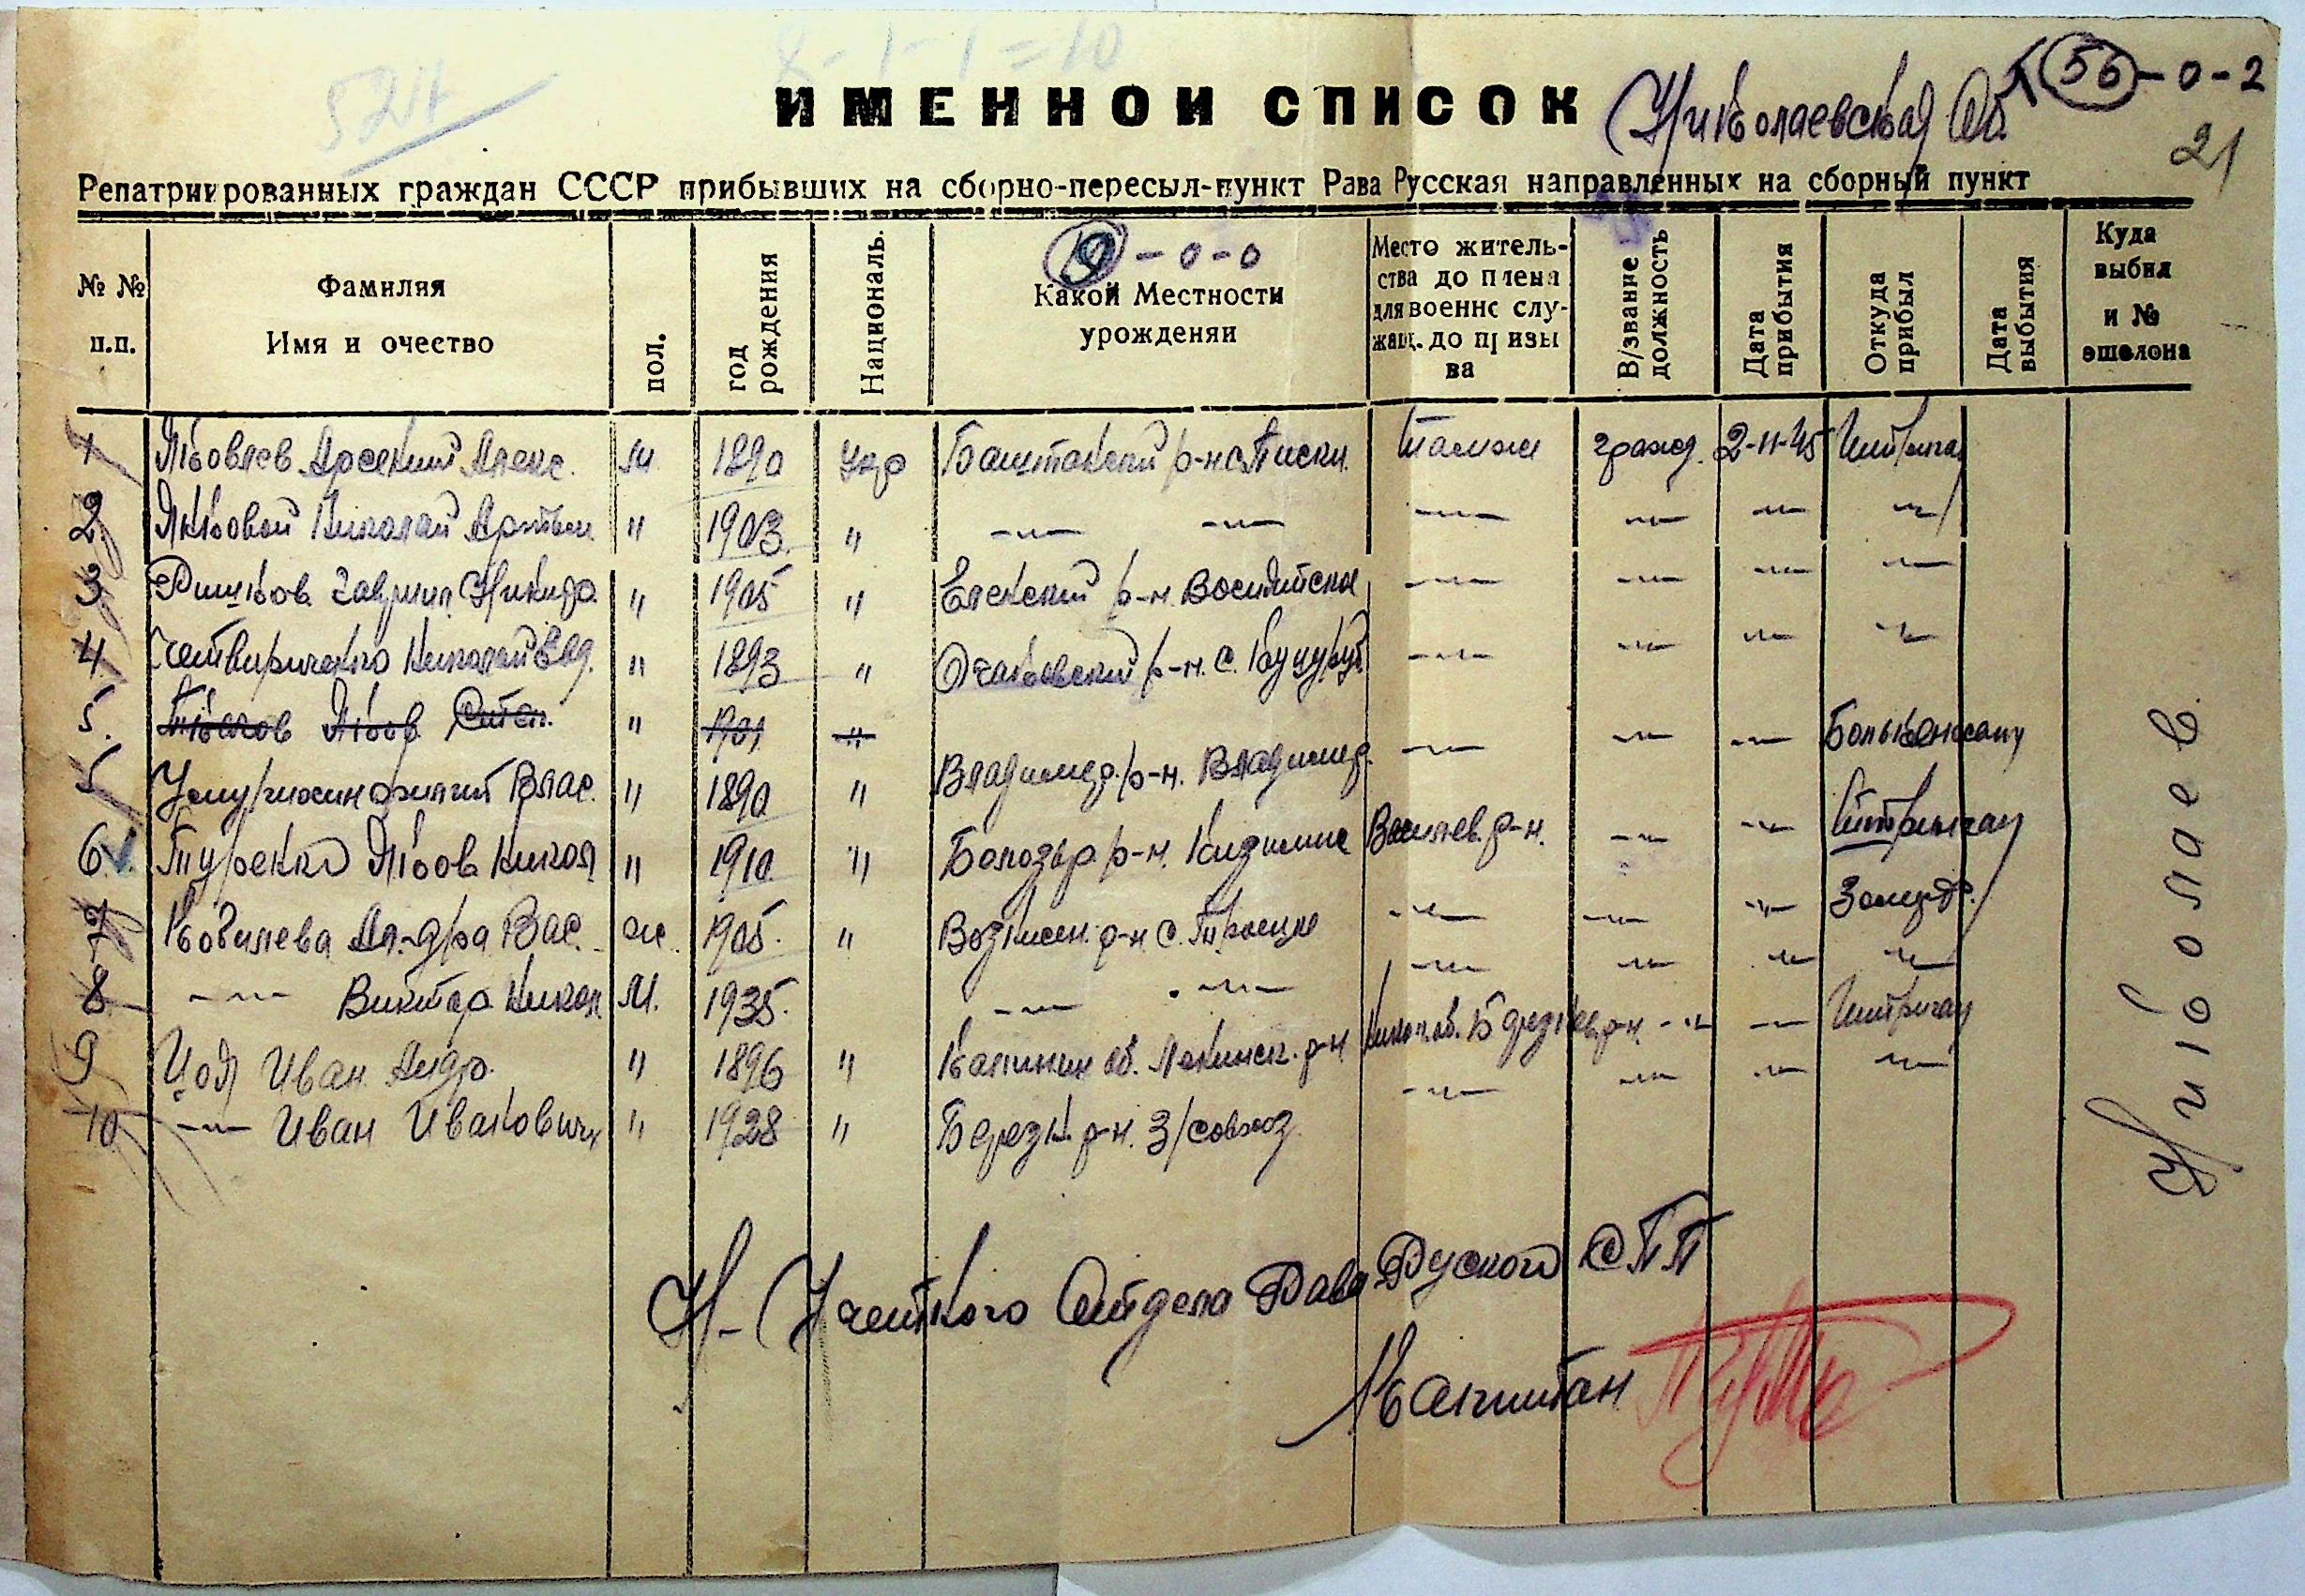 524
8-1-1=10
ИМЕННОЙ СПИСОК
Николаевская Об.
56 - 0 - 2
21
Репатриированных граждан СССР прибывших на сборно-пересыл-пункт Рава Русская направленных на сборный пункт
№ № п.п.
Фамилия Имя и очество
пол.
год рождения
Националь.
9 - 0 - 0
Какой Местности урожденяи
Место жительства до плена для военно служащ. до призыва
В/звание должность
Дата прибытия
Откуда прибыл
Дата выбытия
Куда выбил и № эшелона
1 Яковлев Арсений Алекс. м 1890 Укр Баштанский р-н с. Писки Тамже гражд. 2-11-45 Штригау
2 Яковой Николай Артем. " 1903 " -"- -"- -"- -"- -"- -"-
3 Рышков Гаврил Никифо. " 1905 " р-н. -"- -"- -"- -"-
4 Николай Евд. " 1893 " Очаковский р-н. с. Буцуруб -"- -"- -"- -"-
5. Яков Степ. " 1901 "
5 Влас. " 1890 " Владимир. р-н. Владимир. -"- -"- -"- Болькенхану
6 Туренко Яков Никол " 1910 " Белозер р-н. р-н. -"- -"- Штригау
7 Ковалева Ал-дра Вас. ж 1905. " Вознесен. р-н с. Троецке -"- -"- -"-
8 -"- Виктор Никол. М. 1935. -"- -"- -"- -"- -"- -"-
9 Цоя Иван Андр. " 1896 " Калинин об. Ленинск. р-н Никол. об. р-н. -"- -"- Штригау
10 -"- Иван Иванович " 1928 " Березн р-н. З/совхоз -"- -"- -"- -"-
Николаев
Н-Учетного Отдела Рава Руской СПП
Капитан